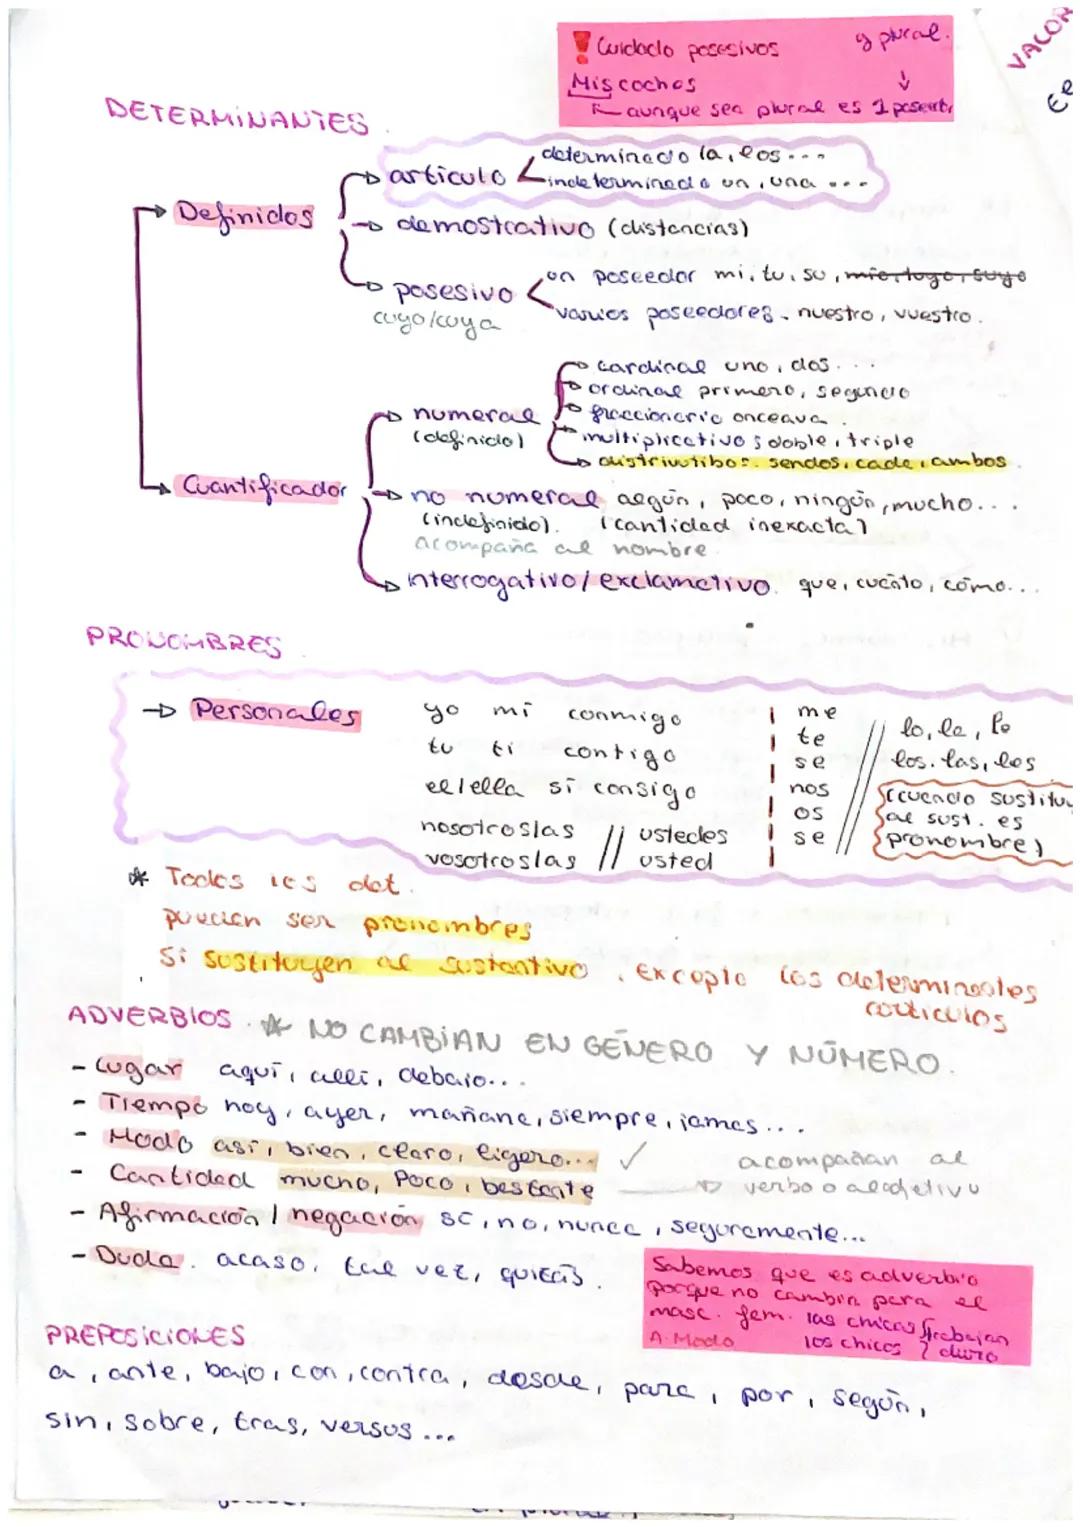 ! Cuidado posesivos y plural.
Mis coches ↓
aunque sea plural es 1 poseedor
VALOR
DETERMINANTES
determinado la, los...
→ artículo
indeterminado un, una ...
→ Definidos
→ demostrativo (distancias)
un poseedor mi, tu, su, mío, tuyo, suyo
→ posesivo
cuyo/cuya
varios poseedores - nuestro, vuestro.
→ cardinal uno, dos...
→ ordinal primero, segundo
→ numeral
→ fraccionario onceava.
(definido)
→ multiplicativos doble, triple
→ distriutibos: sendos, cada, ambos
→ Cuantificador
→ no numeral algún, poco, ningún, mucho...
(indefinido). (cantidad inexacta)
acompaña al nombre
→ interrogativo/exclamativo. que, cuánto, cómo...
PRONOMBRES
→ Personales
yo mí conmigo
tu ti contigo
el/ella sí consigo
nosotros/as // ustedes
vosotros/as // usted
me
te
se
nos
os
se
// lo, la, le
los, las, les
(cuando sustituy
al sust. es
pronombre)
* Todos los det.
pueden ser pronombres
Si sustituyen al sustantivo. Excepto los determinantes
artículos
ADVERBIOS * NO CAMBIAN EN GÉNERO Y NÚMERO.
- Lugar aquí, allí, debajo...
- Tiempo hoy, ayer, mañana, siempre, jamas...
- Modo así, bien, claro, ligero... ✓ acompañan al
- Cantidad mucho, Poco, bastante → verbo o adjetivo
- Afirmación / negación sí, no, nunca, seguramente...
- Duda. acaso, tal vez, quizás.
Sabemos que es adverbio
porque no cambia para el
masc. fem. las chicas trabajan
A. Modo los chicos duro
PREPOSICIONES
a, ante, bajo, con, contra, desde, para, por, según,
sin, sobre, tras, versus ...